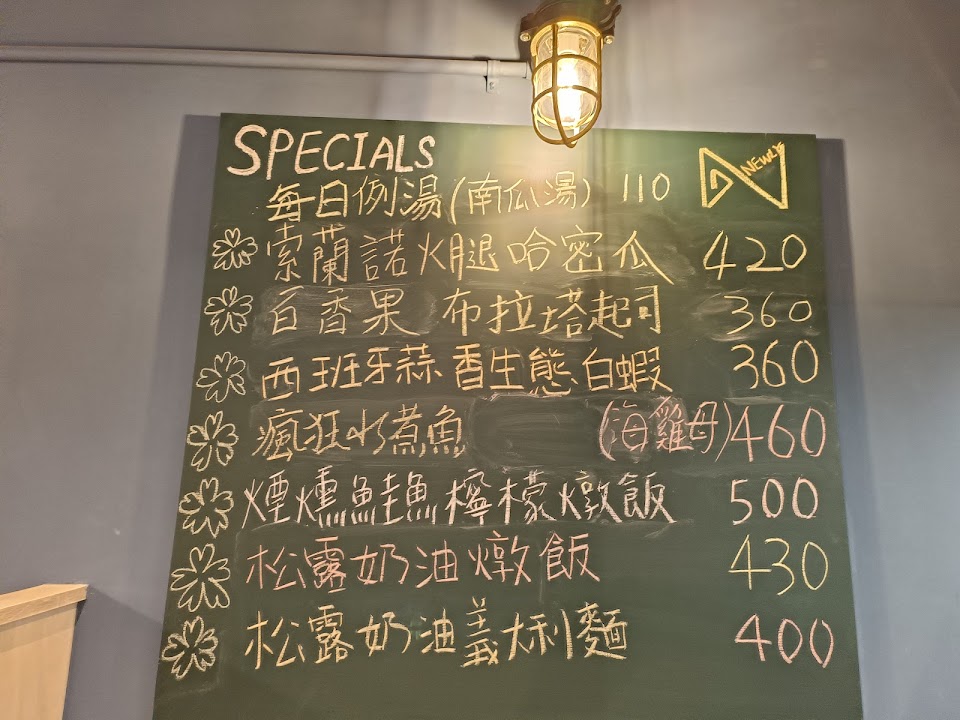 SPECIALS
NEWLY
每日例湯(南瓜湯) 110
索蘭諾火腿哈密瓜 420
百香果 布拉塔起司 360
西班牙蒜香生態白蝦 360
瘋狂水煮魚 (海雞母)460
煙燻鮭魚檸檬燉飯 500
松露奶油燉飯 430
松露奶油義大利麵 400